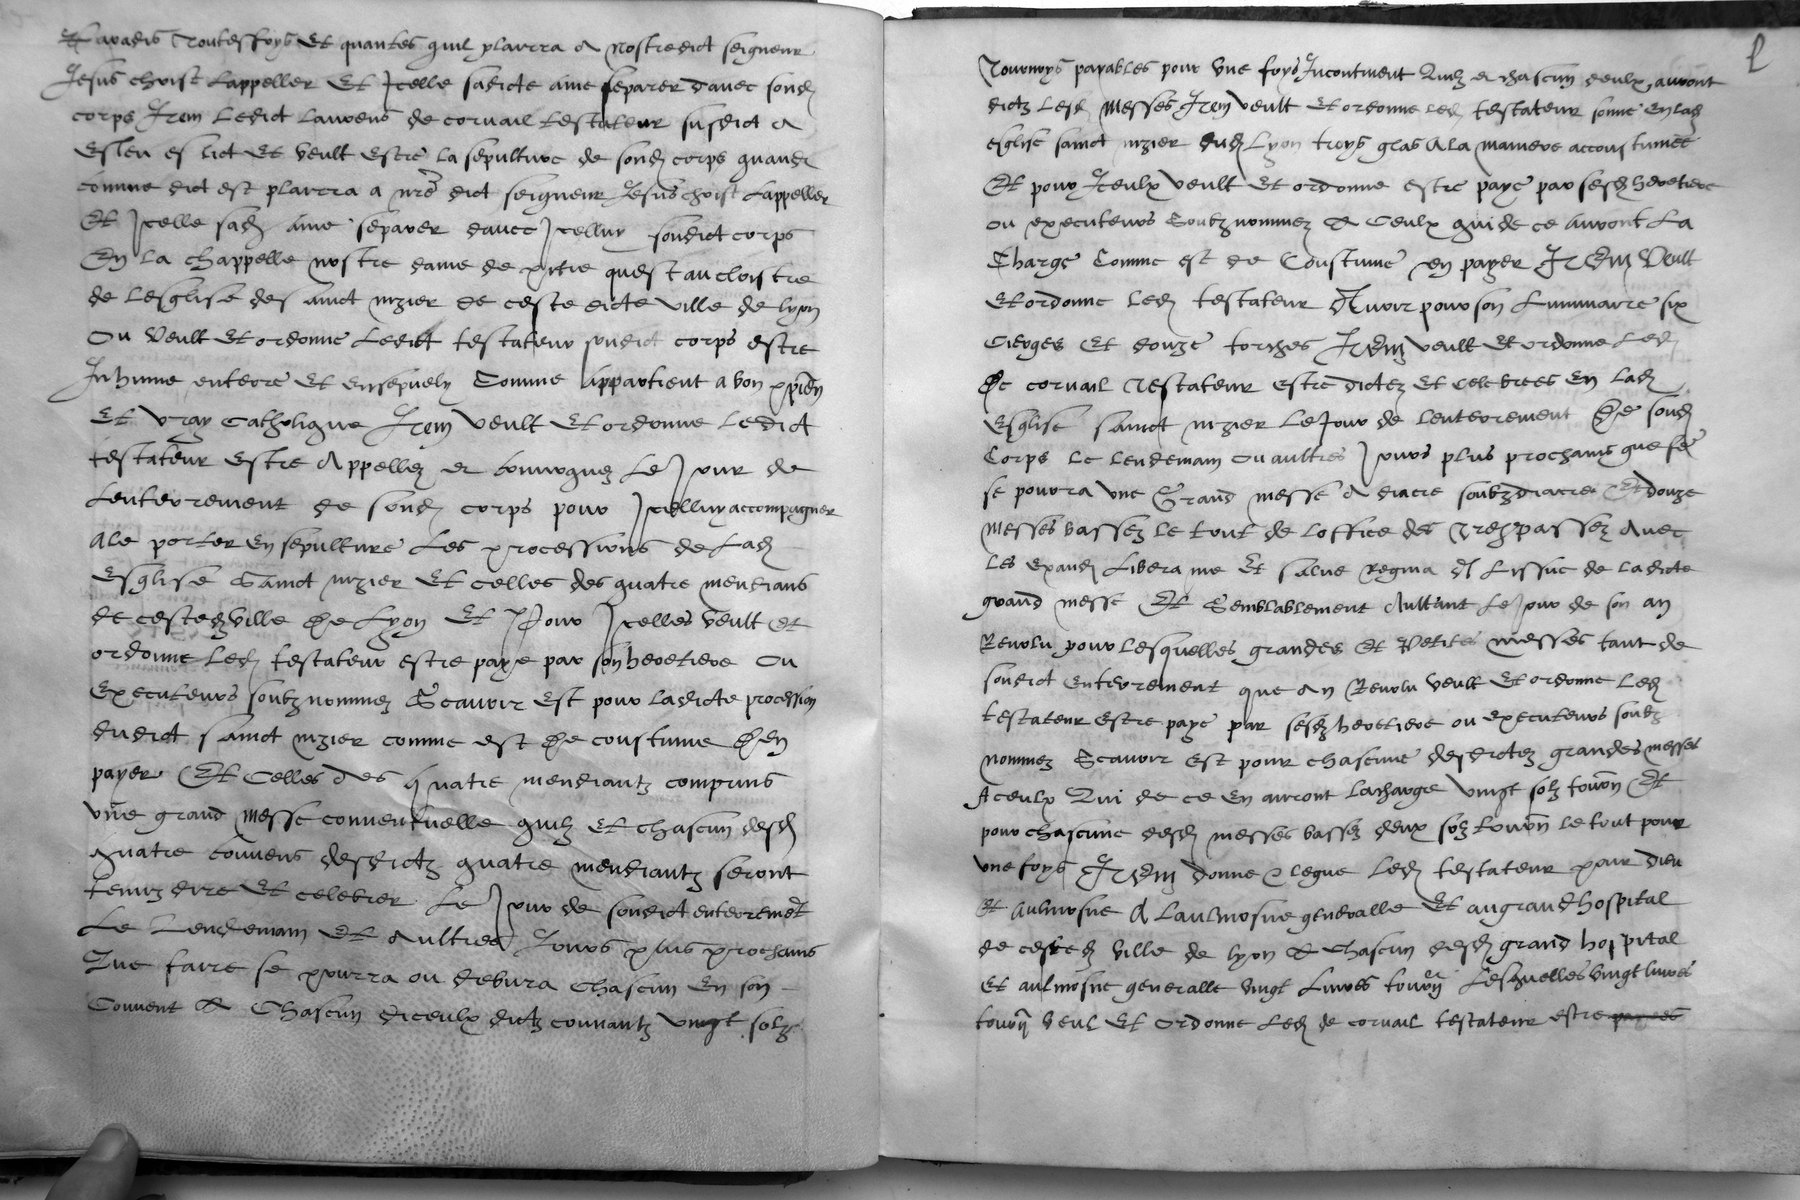 Paradis Toutesfoys Et quantes quil plairra A nostredict seigneur
Jesus christ Lappeller Et Jcelle sadicte ame separer davec sond
corps Jtem Ledict Laurens de corvail testateur susdict A
Esleu et Veult estre la sepulture de sond corps quand
comme dict est plairra a nre dict seigneur Jesus christ Lappeller
Et Jcelle sad ame separer davec Jcelluy sondict corps
En La chappelle nostre dame de pitie quest au cloistre
de Lesglise de sainct nizier de ceste dicte ville de lyon
Ou Veult Et ordonne Ledict testateur sondict corps estre
Jnhume enterre Et ensepuely Comme appartient a bon xpien
Et vray catholique Jtem veult Et ordonne Ledict
testateur estre Appellez et convoquez Le Jour de
Lenterrement de sond corps pour Jcelluy accompagner
A le porter En sepulture Les processions de Lad
Esglise Sainct nizier Et celles des quatre mendians
de cested ville de Lyon Et Pour Jcelles veult Et
ordonne Led testateur estre paye par son heretiere Ou
Executeurs soubz nommez Scavoir Est pour Ladicte procession
dudict sainct nizier comme est de coustume den
payer Et Celles des quatre mendiantz comprins
une grand messe conventuelle quilz Et chascun desd
quatre couvens desdictz quatre mendiantz seront
tenuz dire Et celebrer Le Jour de sondict enterremet
Le Lendemain Et Aultres Jours plus prochains
Que faire se pourra ou debvra Chascun En son
Couvent A Chascun diceulx dictz couvantz vingt solz
Tournoys payables pour Une foys Jncontinent Quilz et chascun deulx auront
dictz Lesd Messes Jtem veult Et ordonne Led testateur sonne En Lad
esglise sainct nizier dud Lyon troys glas A la maniere accoustumee
Et pour Jceulx veult Et ordonne estre paye par sesd heretiere
ou executeurs soubz nommez A Ceulx qui de ce auront La
Charge Comme est de Coustume en payer Jtem Veult
Et ordonne Led testateur Avoir pour son Luminaire six
Cierges Et douze torches Jtem veult Et ordonne Led
de corvail Testateur estre dictez Et celebrees En Lad
Esglise sainct nizier Le Jour de Lenterrement de sond
Corps Le Lendemain Ou aultres Jours plus prochains que fe
se pourra une Grand messe A diacre soubzdiacre Et douze
Messes basses Le tout de Loffice des Trespassez Avec
Les Exaud Libera me Et salve Regina A Lissue de Ladicte
grand messe Et Semblablement Aultant Le Jour de son an
Revolu pour Lesquelles grandes Et Petites messes tant de
sondict enterrement que An Revolu veult Et ordonne Led
testateur estre paye par sesd heretiere ou executeurs soubz
nommez Scavoir Est pour chascune desdictez grandes messes
A ceulx Qui de ce En auront Lacharge vingt solz tourn Et
pour chascune desd messes bassez deux solz tourn Le tout pour
une foys Jtem donne & legue Led testateur pour dieu
Et Aulmosne A Laulmosne generalle Et au grand hospital
de cested ville de Lyon A Chascun desd grand hospital
Et aulmosne generalle vingt Livres tourn Lesquelles vingt Livres
tourn veul Et Ordonne Led de corvail testateur estre payees